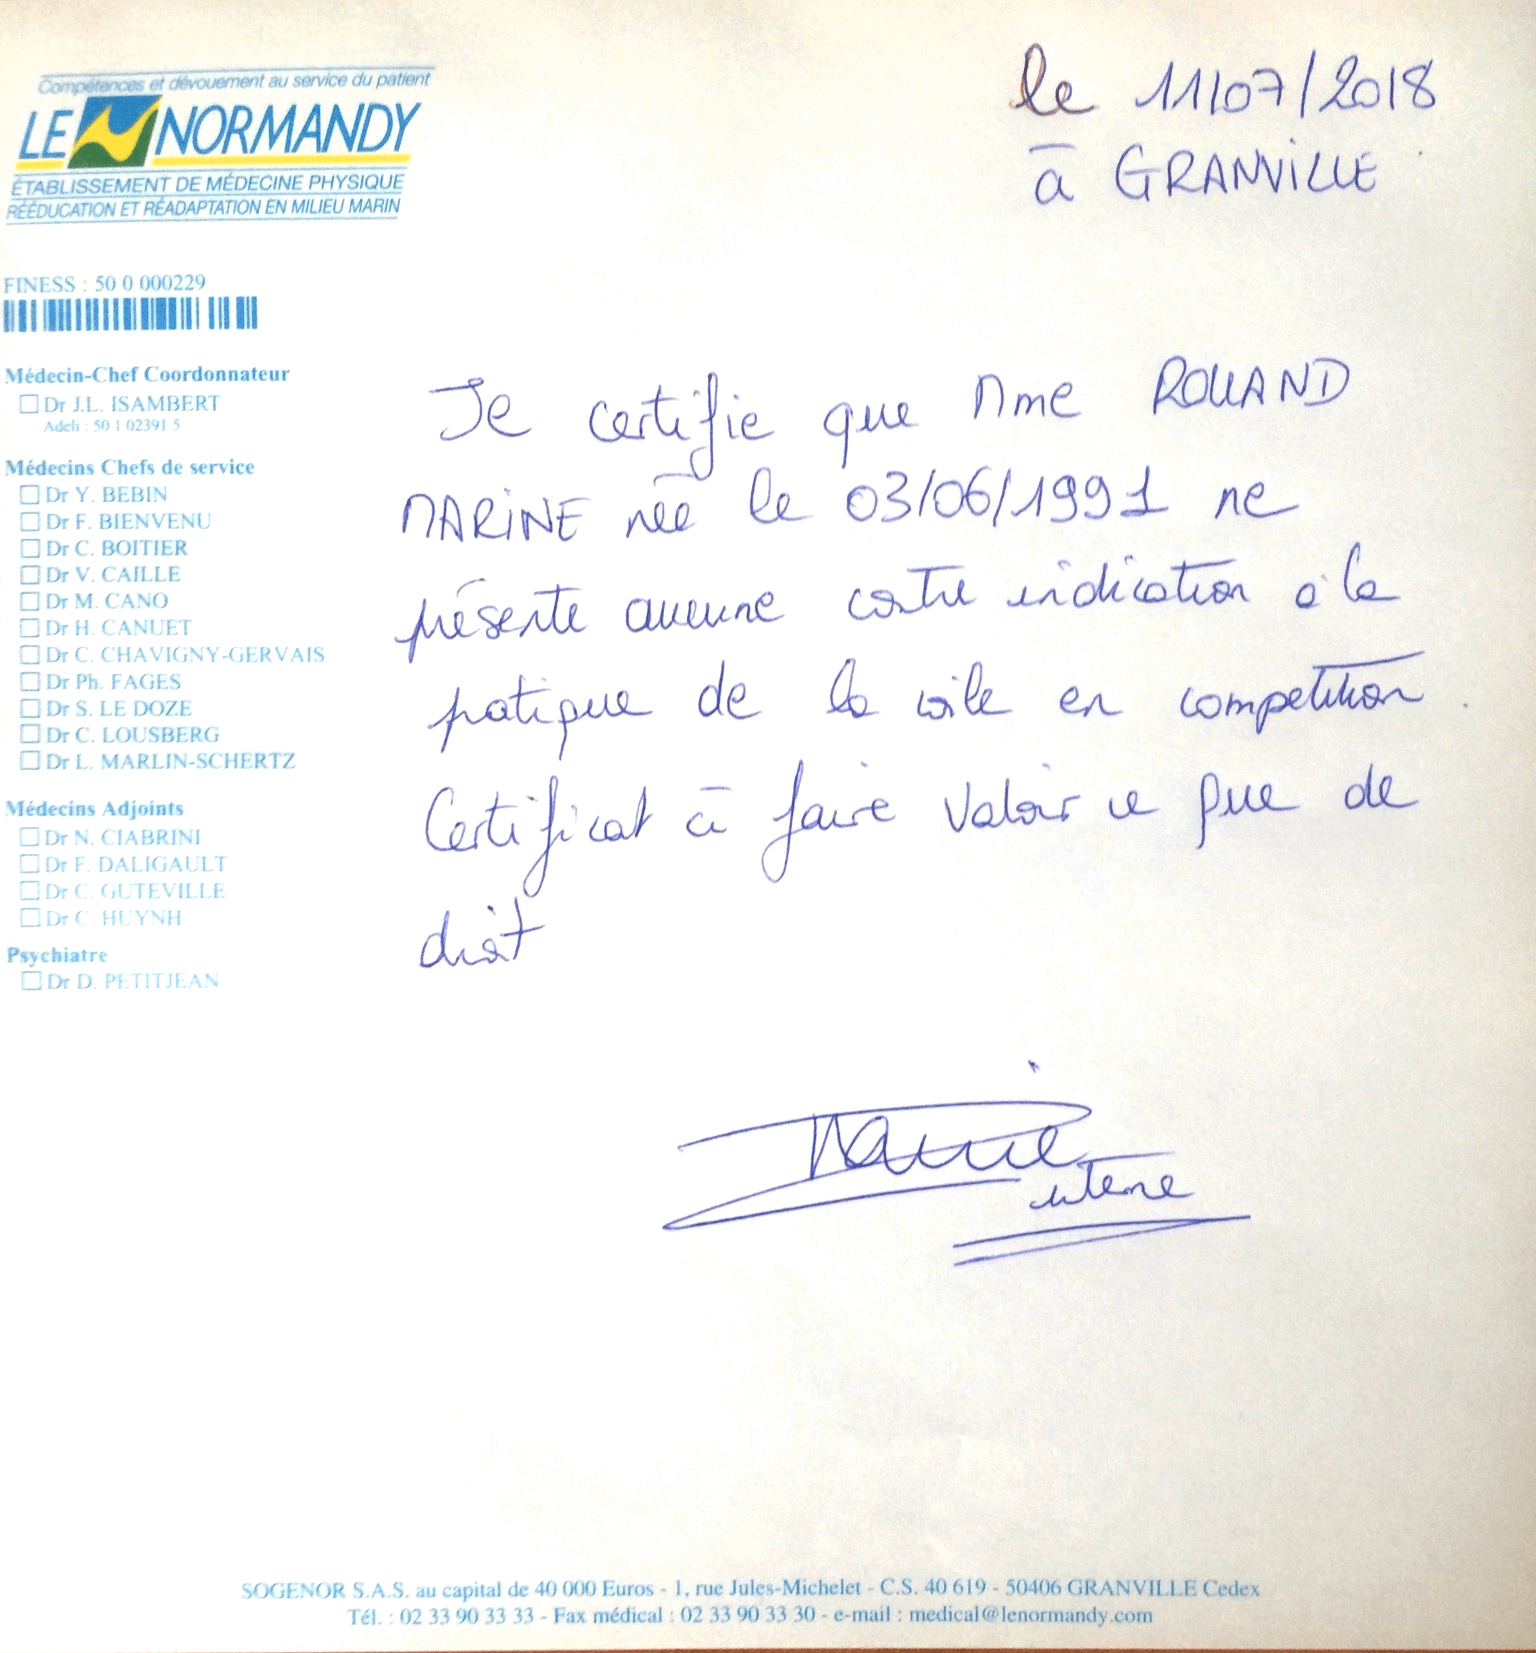 Compétences et dévouement au service du patient
LE NORMANDY
ÉTABLISSEMENT DE MÉDECINE PHYSIQUE
RÉÉDUCATION ET RÉADAPTATION EN MILIEU MARIN
le 11/07/2018
à GRANVILLE
FINESS : 50 0 000229
Médecin-Chef Coordonnateur
Dr J.L. ISAMBERT
Adeli : 50 1 02391 5
Médecins Chefs de service
Dr Y. BEBIN
Dr F. BIENVENU
Dr C. BOITIER
Dr V. CAILLE
Dr M. CANO
Dr H. CANUET
Dr C. CHAVIGNY-GERVAIS
Dr Ph. FAGES
Dr S. LE DOZE
Dr C. LOUSBERG
Dr L. MARLIN-SCHERTZ
Médecins Adjoints
Dr N. CIABRINI
Dr F. DALIGAULT
Dr C. GUTEVILLE
Dr C. HUYNH
Psychiatre
Dr D. PETITJEAN
Je certifie que Mme
MARINE née le 03/06/1991 ne
présente aucune contre indication à la
pratique de la voile en compétition.
Certificat à faire valoir ce que de
droit
interne
SOGENOR S.A.S. au capital de 40 000 Euros - 1, rue Jules-Michelet - C.S. 40 619 - 50406 GRANVILLE Cedex
Tél. : 02 33 90 33 33 - Fax médical : 02 33 90 33 30 - e-mail : medical@lenormandy.com